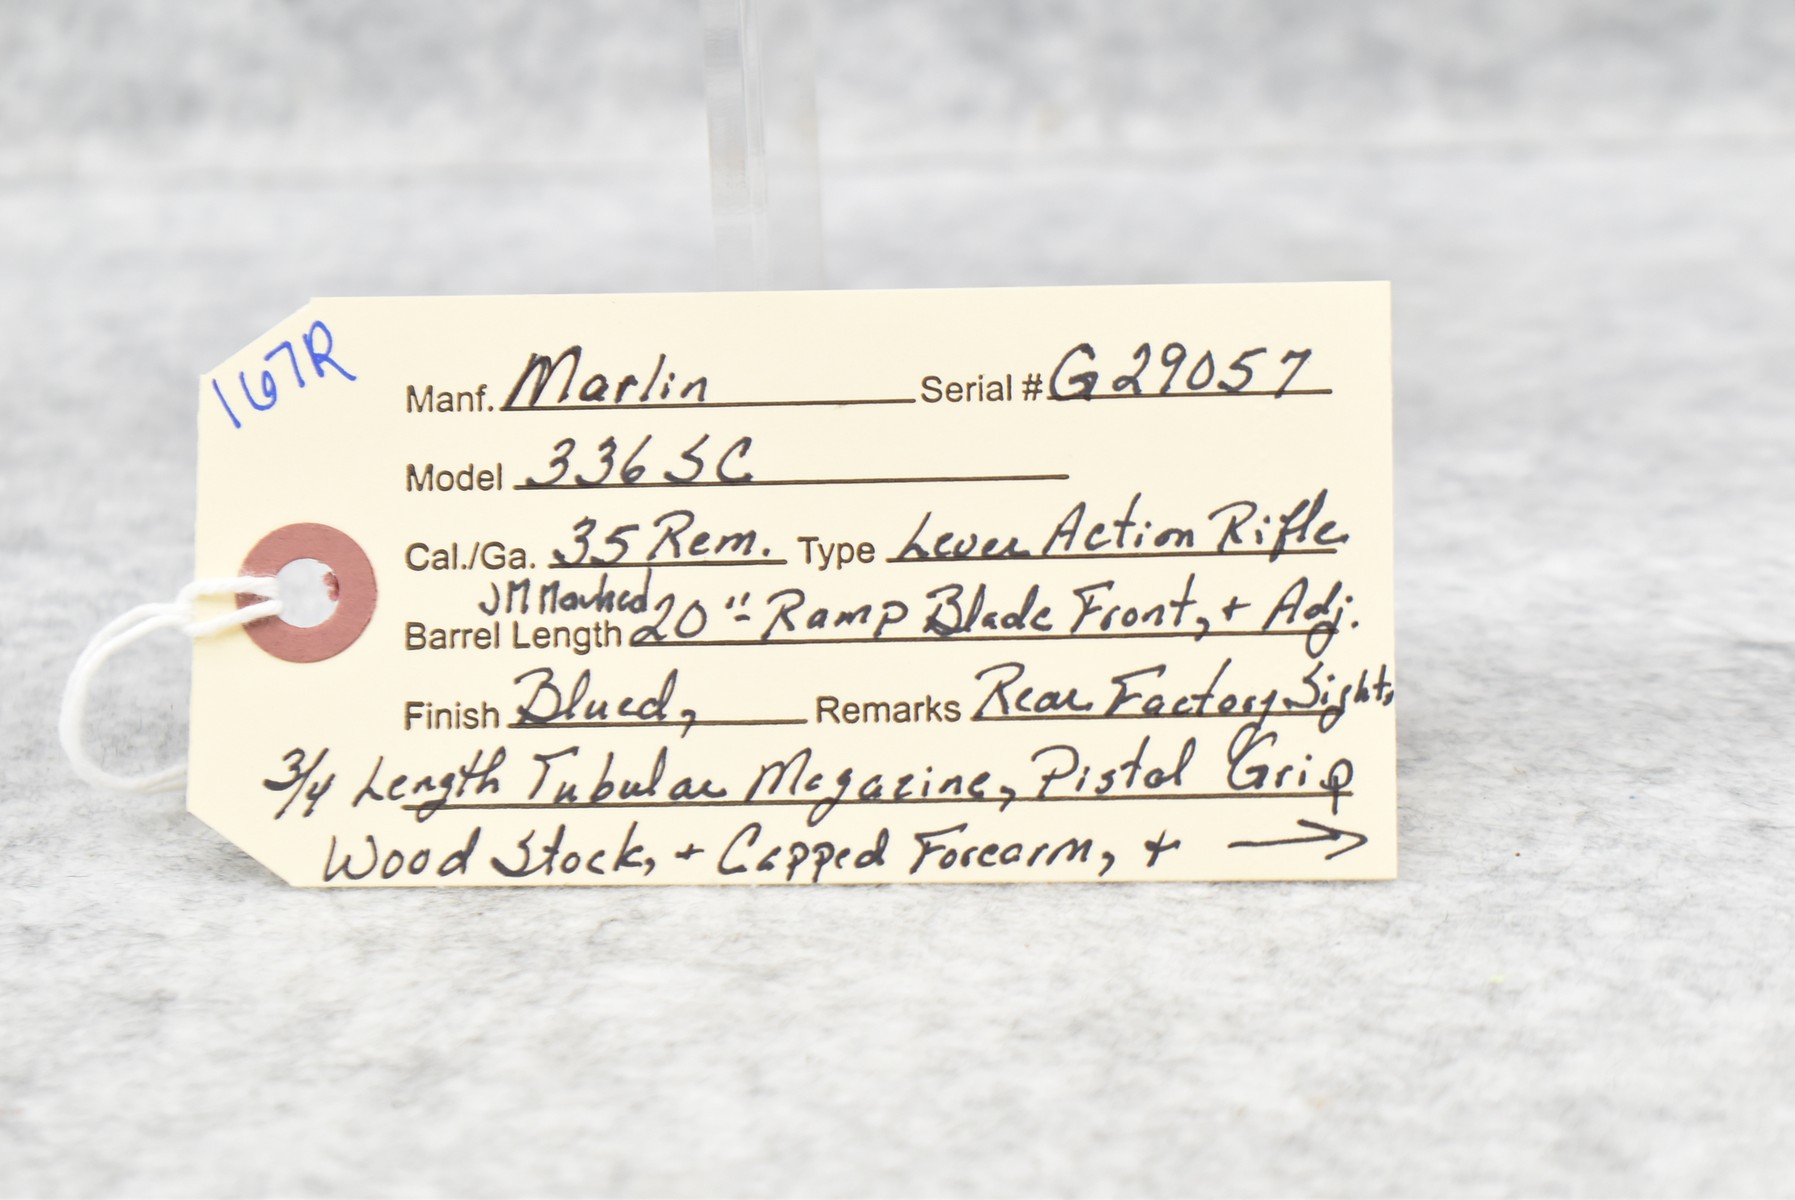 167R
Manf. Marlin Serial # G29057
Model 336 SC
Cal./Ga. 35 Rem. Type Lever Action Rifle.
JM Marked
Barrel Length 20"- Ramp Blade Front, + Adj.
Finish Blued, Remarks Rear Factory Sight,
3/4 Length Tubular Magazine, Pistol Grip
Wood Stock, + Capped Forearm, + →